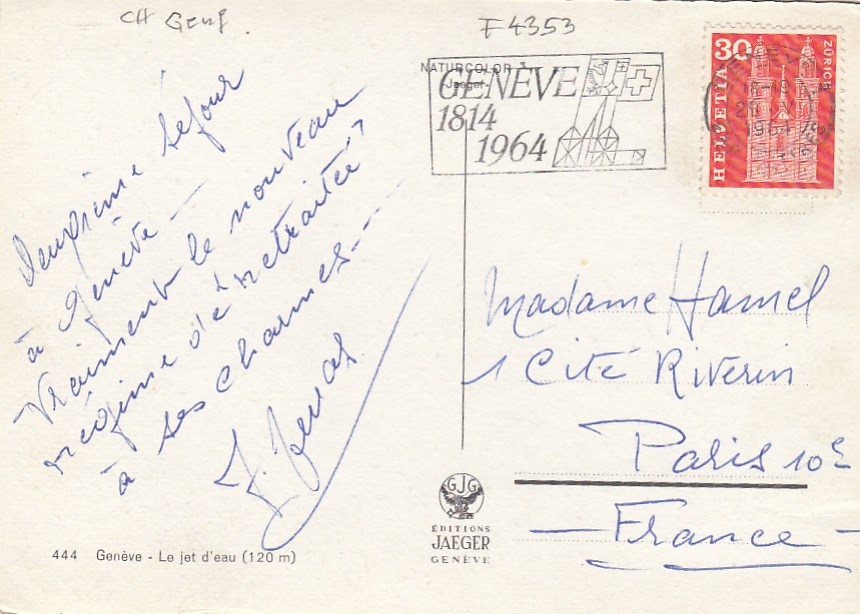 CH Genf.
F4353
NATURCOLOR
Jaeger
GENÈVE
1814
1964
30
HELVETIA
ZÜRICH
1964
Deuxième séjour
à Genève —
Vraiment le nouveau
régime de "retraitée"
a ses charmes...
Madame Hamel
1 Cité Riverin
Paris 10e
— France —
GJG
ÉDITIONS
JAEGER
GENÈVE
444 Genève - Le jet d'eau (120 m)